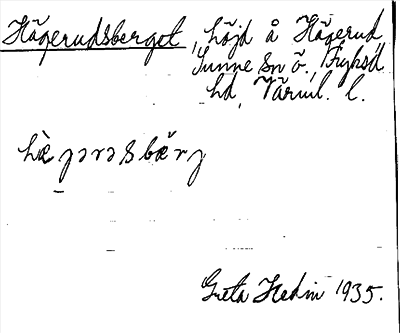 Hägerudsberget, höjd å Hägerud
Sunne sn ö., Fryksd.
hd, Värml. l.
hæ̀ȷərəsbærȷ
Greta Hedin 1935.